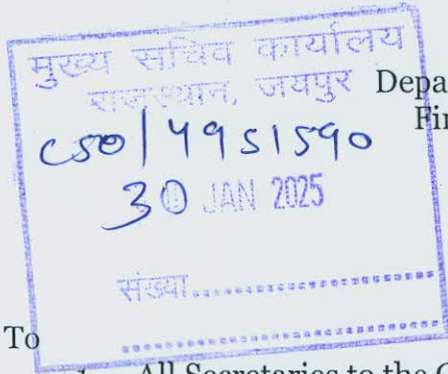 मुख्य सचिव कार्यालय
राजस्थान, जयपुर
Depa
Fin
CSO/4951590
30 JAN 2025
संख्या
To
All Secretaries to the G